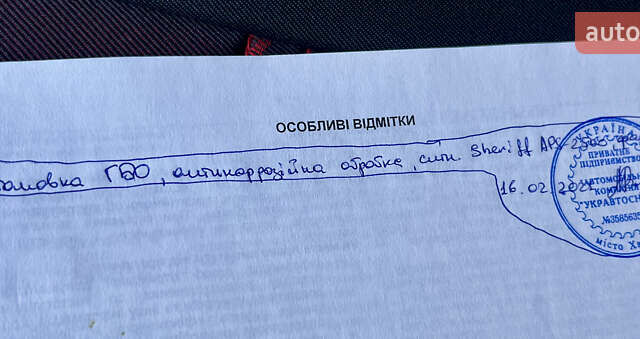 auto
ОСОБЛИВІ ВІДМІТКИ
ГБО, антикоррозійна обробка, сигн. Sheriff APS
16.02.
УКРАЇНА
ПРИВАТНЕ
ПІДПРИЄМСТВО
АВТОМОБІЛЬНА
"УКРАВТОС
№358563
місто Ха